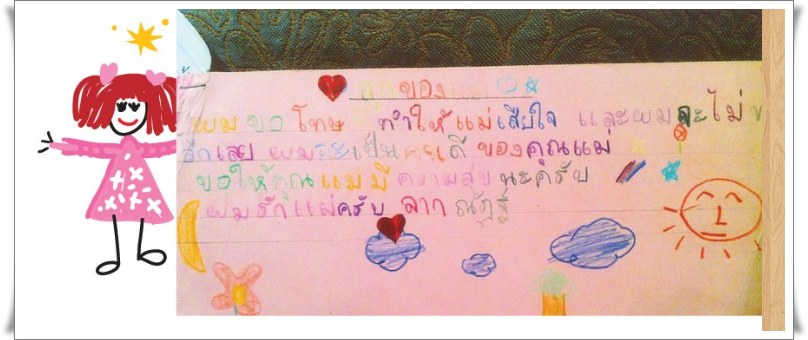 ของ
ผมขอโทษ ทำให้แม่เสียใจ และผมจะไม่
อีกเลย ผมจะเป็น ของคุณแม่
ขอให้คุณแม่มีความสุขนะครับ
ผมรักแม่ครับ จาก